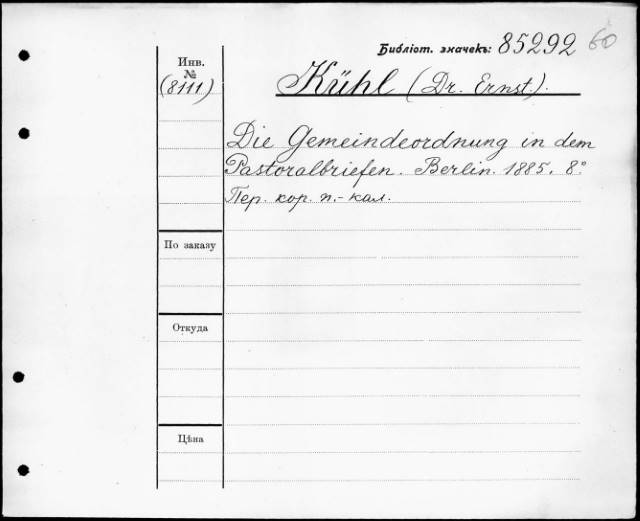 Библіот. значекъ: 85292 60
Инв.
№
(8111)
Kühl (Dr. Ernst.).
Die Gemeindeordnung in dem
Pastoralbriefen. Berlin. 1885. 8º
Пер. кор. п.-кал.
По заказу
Откуда
Цѣна